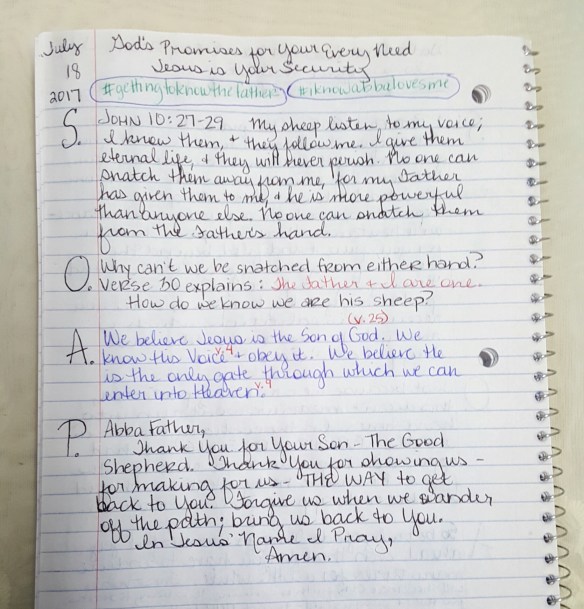 July 18 2017
God's Promises for Your Every Need
Jesus is Your Security
#gettingtoknowthefather #iknowabbalovesme
S. JOHN 10:27-29 My sheep listen to my voice;
I know them, + they follow me. I give them
eternal life, + they will never perish. No one can
snatch them away from me, for my Father
has given them to me, + he is more powerful
than anyone else. No one can snatch them
from the Father's hand.
O. Why can't we be snatched from either hand?
Verse 30 explains: The Father + I are one.
How do we know we are his sheep?
(v. 25)
A. We believe Jesus is the Son of God. We
know His Voice v.4 + obey it. We believe He
is the only gate through which we can
enter into Heaven v.9.
P. Abba Father,
Thank You for Your Son - The Good
Shepherd. Thank You for showing us -
for making for us - THE WAY to get
back to You. Forgive us when we wander
off the path; bring us back to You.
In Jesus' Name I Pray,
Amen.